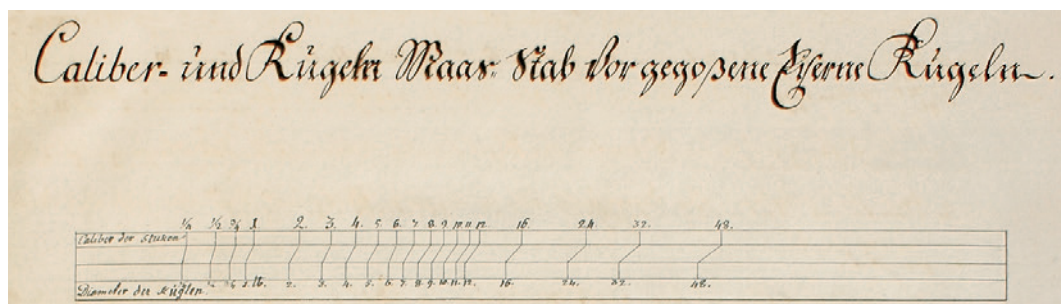 Caliber- und Kugeln Maas-Stab Vor gegoßene Eiserne Kugeln.
¼ ½ ¾ 1 2. 3. 4. 5. 6. 7. 8. 9. 10. 11. 12. 16. 24. 32. 48.
Caliber der Stuken
Diameter der Kuglen. ½ ¾ 1. lb. 2. 3. 4. 5. 6. 7. 8. 9. 10. 11. 12. 16. 24. 32. 48.